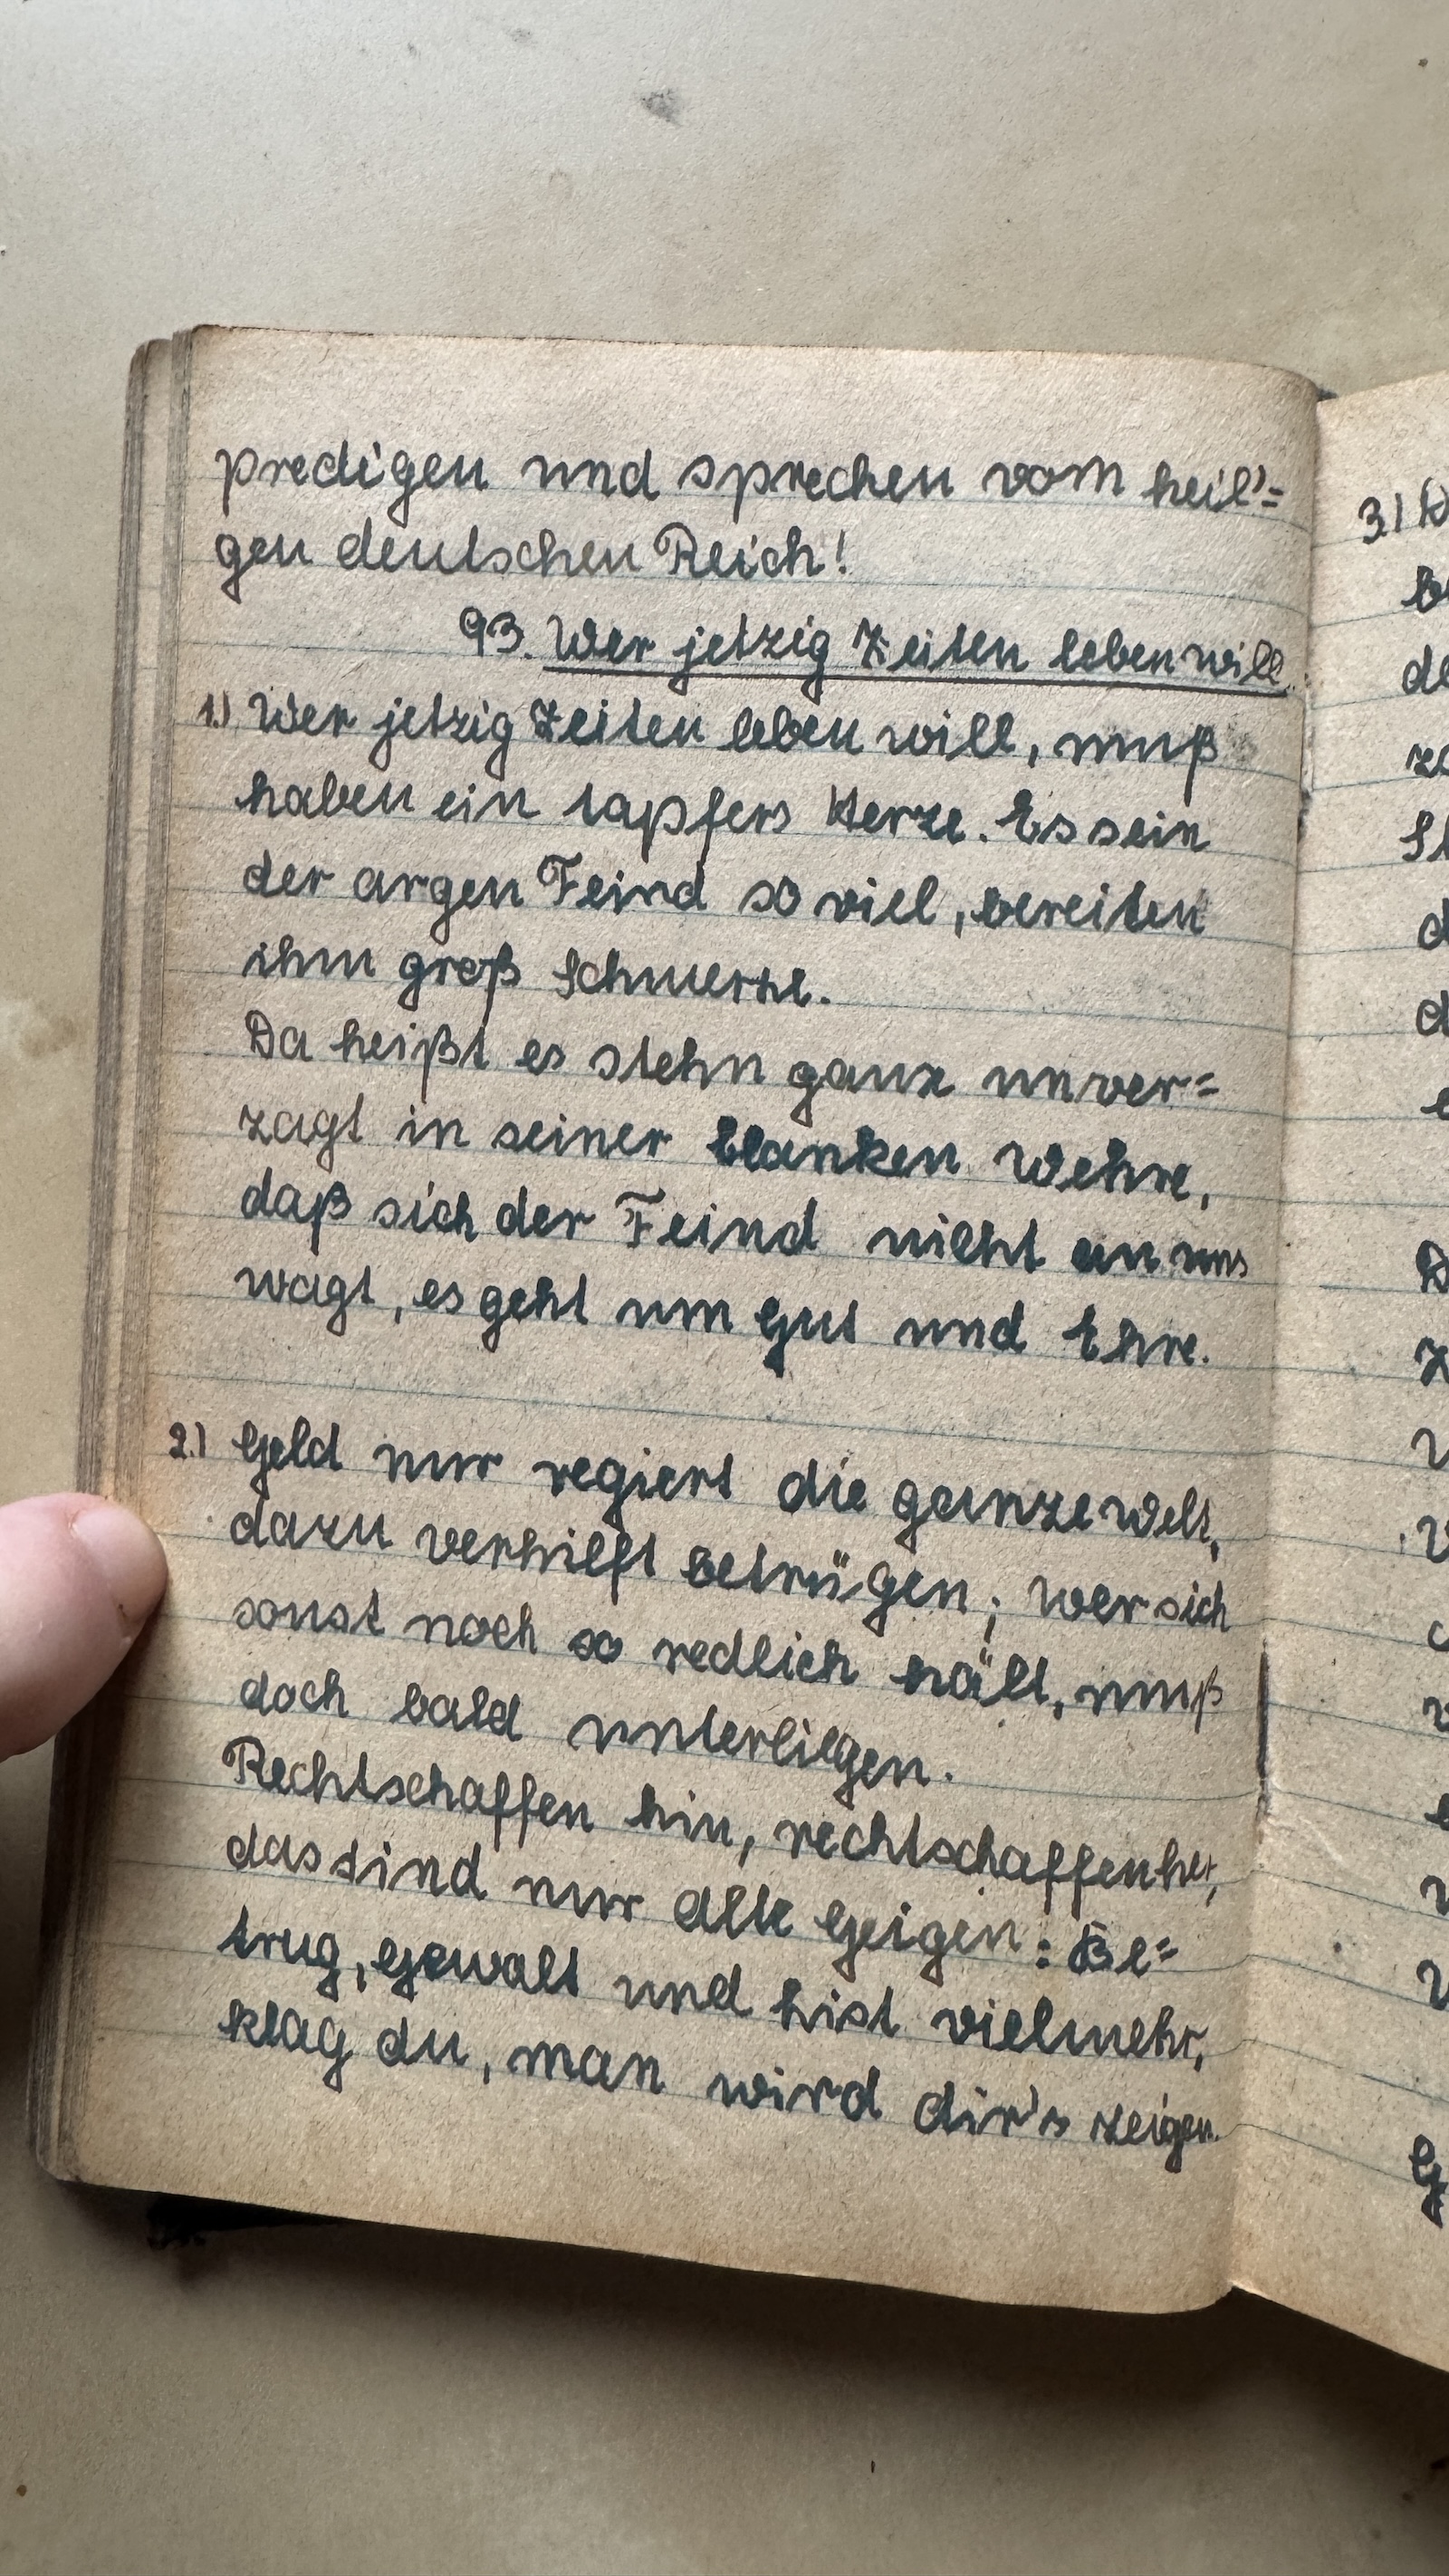 predigen und sprechen vom heil'=
gen deutschen Reich!
93. Wer jetzig Zeiten leben will.
1.) Wer jetzig Zeiten leben will, muß
haben ein tapfers Herze. Es sein
der argen Feind so viel, bereiten
ihm groß Schmerze.
Da heißt es stehn ganz unver=
zagt in seiner blanken Wehre,
daß sich der Feind nicht an uns
wagt, es geht um Gut und Ehre.
2.) Geld nur regiert die ganze Welt,
dazu verhilft betrügen; wer sich
sonst noch so redlich hält, muß
doch bald unterliegen.
Rechtschaffen hin, rechtschaffen her,
das sind nur alte Geigen: Be=
trug, Gewalt und List vielmehr,
klag du, man wird dir's zeigen.
3.)